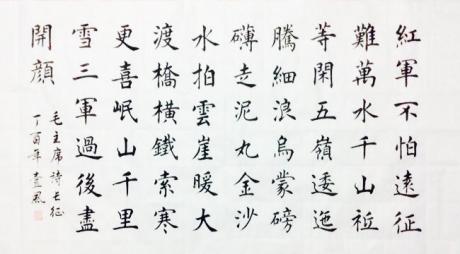 紅軍不怕遠征
難萬水千山祗
等閑五嶺逶迤
騰細浪烏蒙磅
礴走泥丸金沙
水拍雲崖暖大
渡橋橫鐵索寒
更喜岷山千里
雪三軍過後盡
開顏
毛主席詩長征
丁酉年